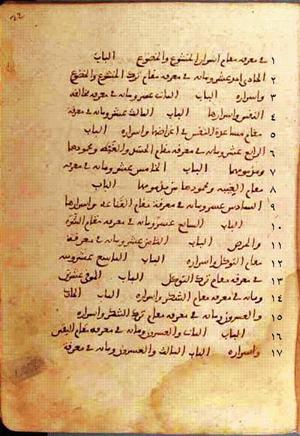 ٢٢
١ في معرفة مقام اسرار الخشوع والخضوع الباب
٢ الحادي عشر ومائة في معرفة مقام ترك الخشوع والخضوع
٣ واسراره الباب الثاني عشر ومائة في معرفة مخالفة
٤ النفس واسرارها الباب الثالث عشر ومائة في معرفة
٥ مقام مساعدة النفس في اغراضها واسراره الباب
٦ الرابع عشر ومائة في معرفة مقام الحسد والغبطة ومحمودها
٧ ومذمومها الباب الخامس عشر ومائة في معرفة
٨ مقام الغيبة ومحمودها من مذمومها الباب
٩ السادس عشر ومائة في معرفة مقام القناعة واسرارها
١٠ الباب السابع عشر ومائة في معرفة مقام الشره
١١ والحرص الباب الثامن عشر ومائة في معرفة
١٢ مقام التوكل واسراره الباب التاسع عشر ومائة
١٣ في معرفة مقام ترك التوكل الباب الموفي عشرين
١٤ ومائة في معرفة مقام الشكر واسراره الباب الحادي
١٥ والعشرون ومائة في معرفة مقام ترك الشكر واسراره
١٦ الباب الثاني والعشرون ومائة في معرفة مقام اليقين
١٧ واسراره الباب الثالث والعشرون ومائة في معرفة